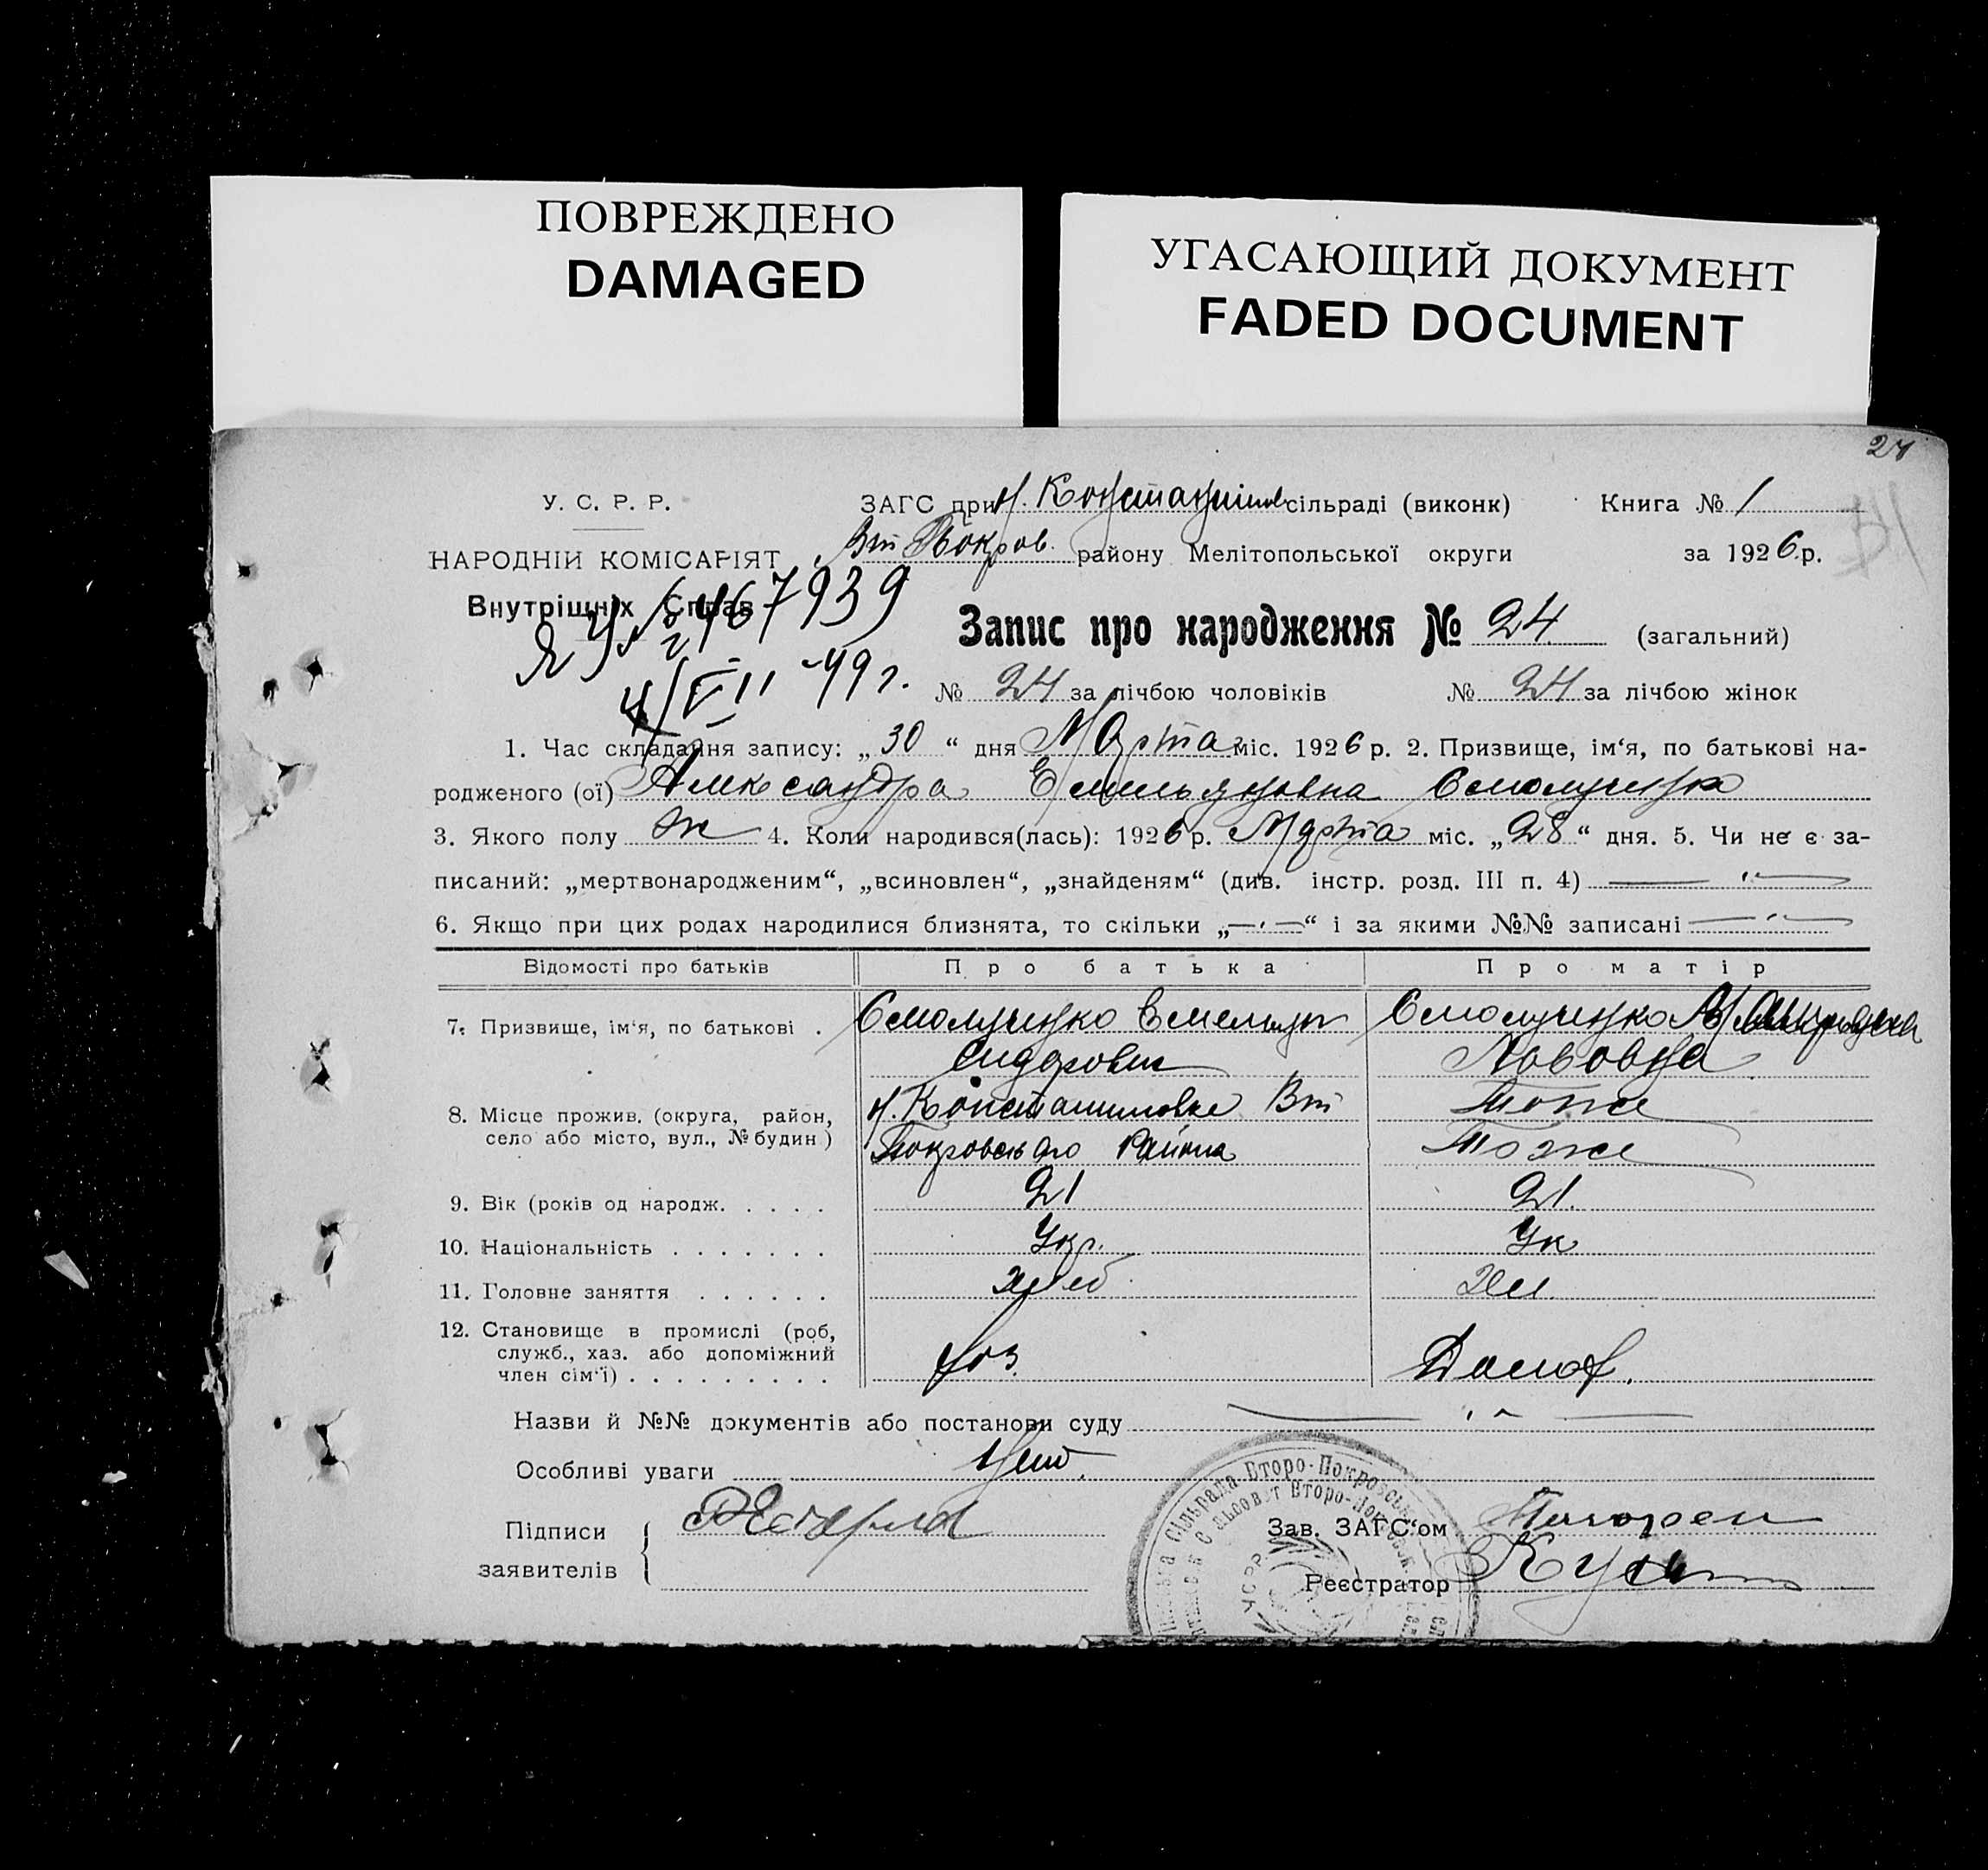 ПОВРЕЖДЕНО
DAMAGED
УГАСАЮЩИЙ ДОКУМЕНТ
FADED DOCUMENT
24
У. С. Р. Р.
ЗАГС при Н. Константинов сільраді (виконк)
Книга № 1
НАРОДНІЙ КОМІСАРІЯТ
Вт Покров. району Мелітопольської округи
за 1926 р.
Внутрішніх Справ
467939
Запис про народження № 24 (загальний)
4/VII -49 г.
№ 24 за лічбою чоловіків
№ 24 за лічбою жінок
1. Час складання запису: „30“ дня Марта міс. 1926 р. 2. Призвище, ім‘я, по батькові на-
родженого (ої) Александра Емельяновна Смолученко
3. Якого полу ж 4. Коли народився(лась): 1926 р. Марта міс. „28“ дня. 5. Чи не є за-
писаний: „мертвонародженим“, „всиновлен“, „знайденям“ (див. інстр. розд. III п. 4)
6. Якщо при цих родах народилися близнята, то скільки „—“ і за якими №№ записані
Відомості про батьків
Про батька
Про матір
7. Призвище, ім‘я, по батькові .
Смолученко Емельян
Сидорович
Смолученко
Львовна
8. Місце прожив. (округа, район,
село або місто, вул., № будин)
Н. Константиновка Вт
Покровского Района
Тоже
Тоже
9. Вік (років од народж. . . . .
21
21.
10. Національність . . . . . . .
Укр.
Ук
11. Головне заняття . . . . . .
хлеб
Хл.
12. Становище в промислі (роб,
служб., хаз. або допоміжний
член сім‘ї) . . . . . . . . .
хоз.
Домох.
Назви й №№ документів або постанови суду
Особливі уваги
Нет.
Підписи
заявителів
Зав. ЗАГС‘ом
Реєстратор